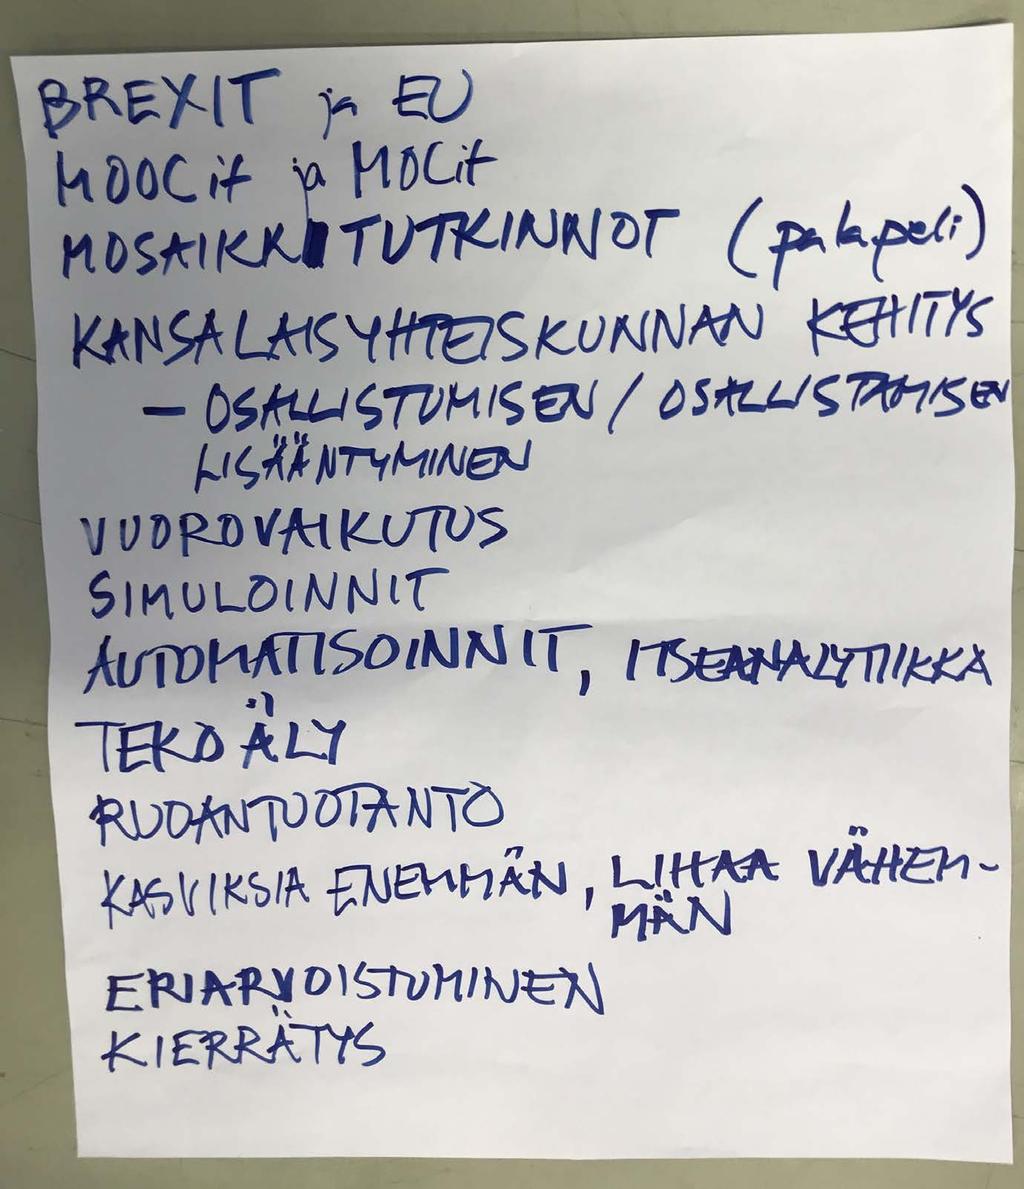 BREXIT ja EU
MOOCit ja MOCit
MOSAIKKITUTKINNOT (palapeli)
KANSALAISYHTEISKUNNAN KEHITYS
- OSALLISTUMISEN / OSALLISTAMISEN
LISÄÄNTYMINEN
VUOROVAIKUTUS
SIMULOINNIT
AUTOMATISOINNIT, ITSEANALYTIIKKA
TEKOÄLY
RUOANTUOTANTO
KASVIKSIA ENEMMÄN, LIHAA VÄHEM-
MÄN
ERIARVOISTUMINEN
KIERRÄTYS